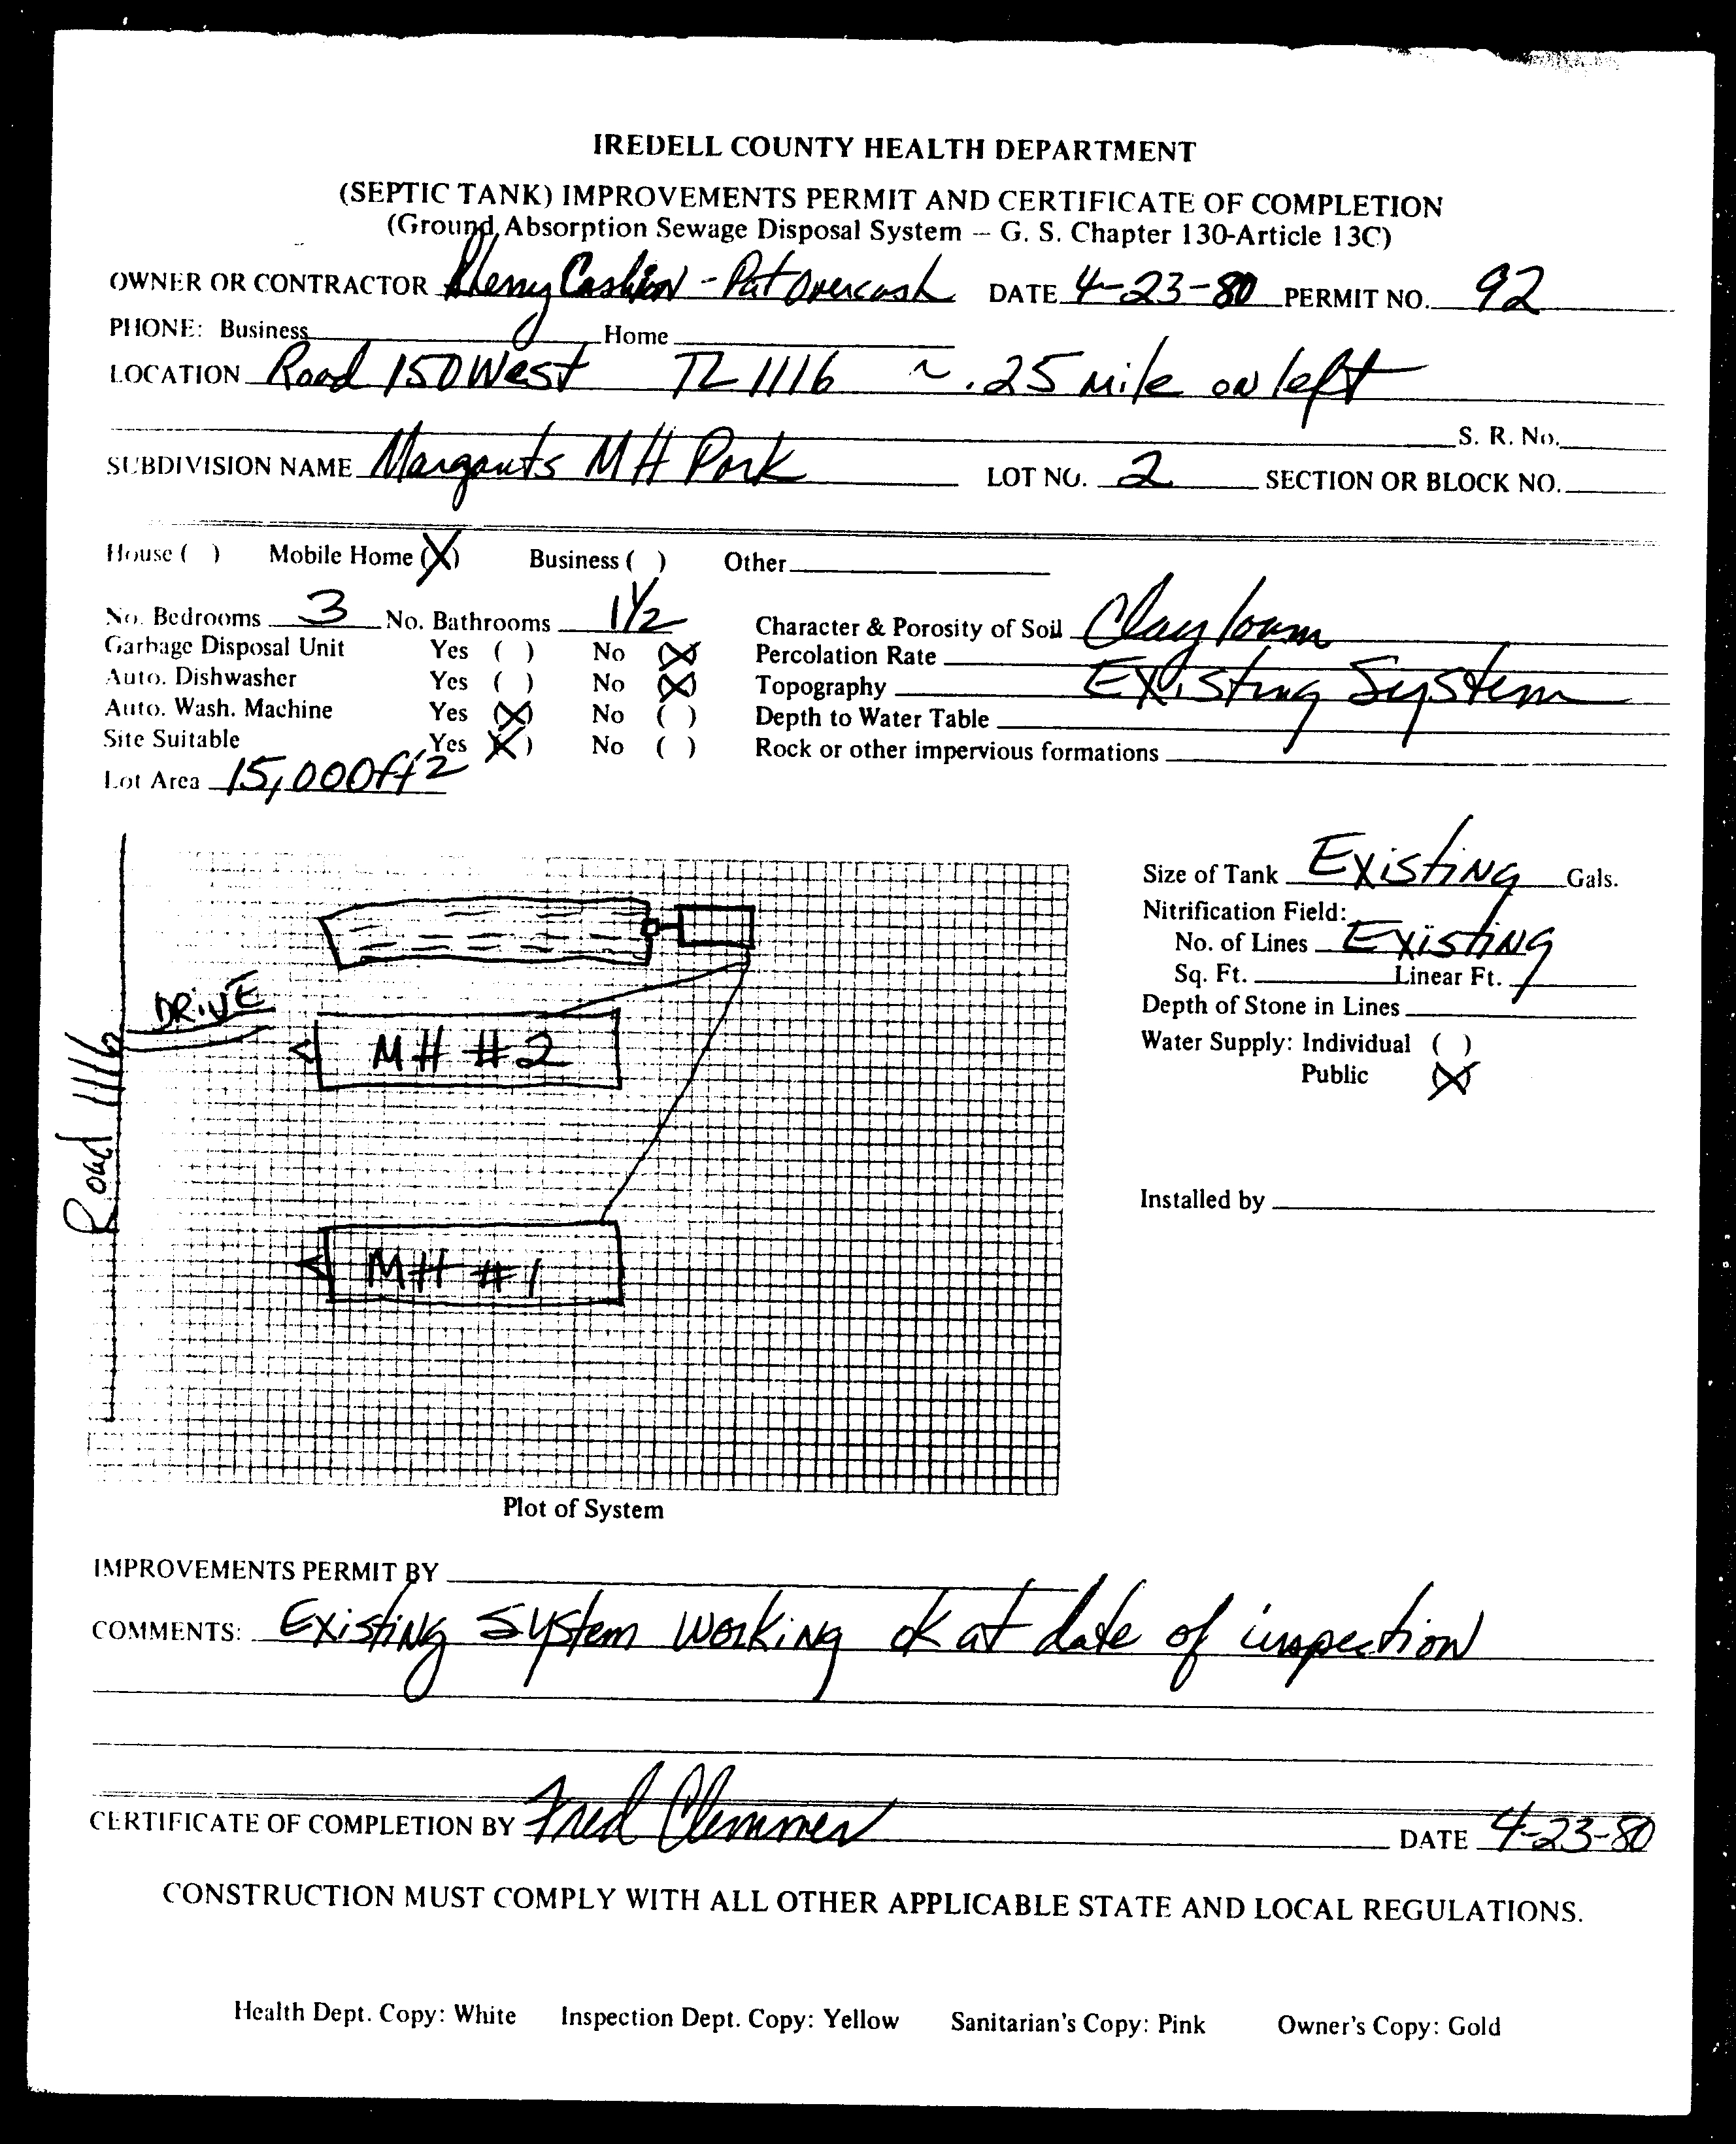 IREDELL COUNTY HEALTH DEPARTMENT
(SEPTIC TANK) IMPROVEMENTS PERMIT AND CERTIFICATE OF COMPLETION
(Ground Absorption Sewage Disposal System -- G. S. Chapter 130-Article 13C)
OWNER OR CONTRACTOR Cashion - Pat Overcash DATE 4-23-80 PERMIT NO. 92
PHONE: Business Home
LOCATION Road 150 West TL 1116 ~ .25 mile on left
S. R. No.
SUBDIVISION NAME MH Park LOT NO. 2 SECTION OR BLOCK NO.
House ( ) Mobile Home (X) Business ( ) Other
No. Bedrooms 3 No. Bathrooms 1 1/2 Character & Porosity of Soil Clay loam
Garbage Disposal Unit Yes ( ) No (X) Percolation Rate
Auto. Dishwasher Yes ( ) No (X) Topography Existing System
Auto. Wash. Machine Yes (X) No ( ) Depth to Water Table
Site Suitable Yes (X) No ( ) Rock or other impervious formations
Lot Area 15,000 ft2
Size of Tank Existing Gals.
Nitrification Field:
No. of Lines Existing
Sq. Ft. Linear Ft.
Depth of Stone in Lines
Water Supply: Individual ( )
Public (X)
Installed by
DRIVE
Road 1116
MH #2
MH #1
Plot of System
IMPROVEMENTS PERMIT BY
COMMENTS: Existing System Working ok at date of inspection
CERTIFICATE OF COMPLETION BY Fred Clemmer DATE 4-23-80
CONSTRUCTION MUST COMPLY WITH ALL OTHER APPLICABLE STATE AND LOCAL REGULATIONS.
Health Dept. Copy: White Inspection Dept. Copy: Yellow Sanitarian's Copy: Pink Owner's Copy: Gold